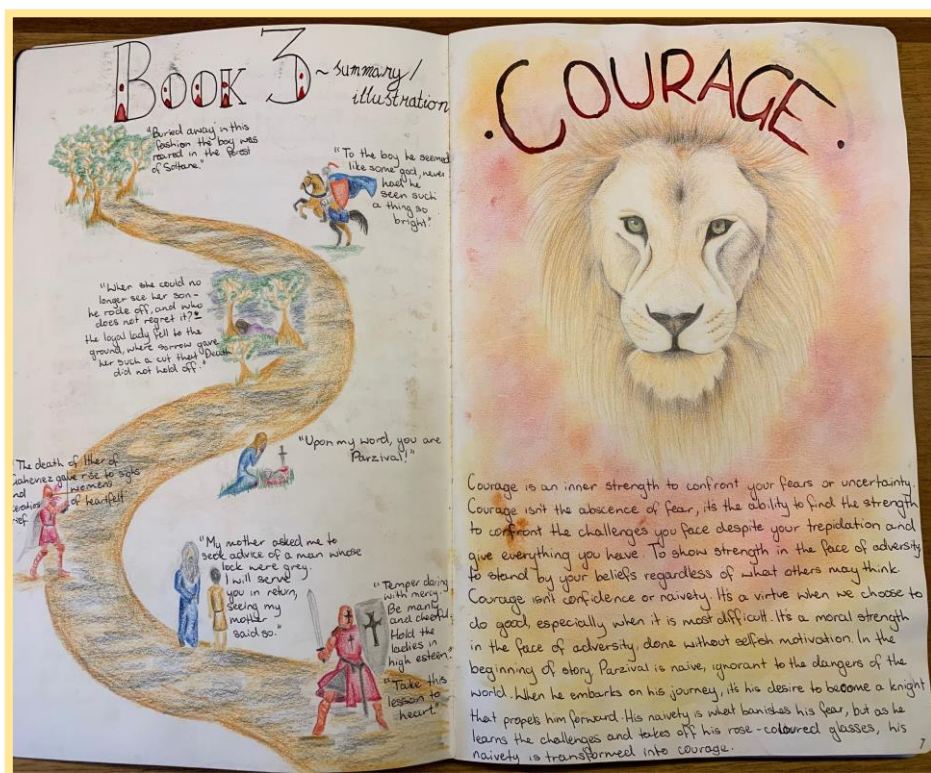 BOOK 3 ~ summary/
illustration
"Buried away in this
fashion the boy was
reared in the forest
of Soltane."
"To the boy he seemed
like some god, never
had he
seen such
a thing so
bright."
"When she could no
longer see her son –
he rode off, and who
does not regret it? –
the loyal lady fell to the
ground, where sorrow gave
her such a cut that Death
did not hold off."
"Upon my word, you are
Parzival!"
"The death of Ither of
Gaheviez gave rise to sighs
and womens
of heartfelt
"My mother asked me to
seek advice of a man whose
lock were grey.
I will serve
you in return,
seeing my
mother
said so."
"Temper daring
with mercy.
Be manly
and cheerful.
Hold the
ladies in
high esteem."
"Take this
lesson to
heart."
COURAGE.
Courage is an inner strength to confront your fears or uncertainty.
Courage isnt the abscence of fear, its the ability to find the strength
to confront the challenges you face despite your trepidation and
give everything you have. To show strength in the face of adversity
to stand by your beliefs regardless of what others may think.
Courage isnt confidence or naivety. It's a virtue when we choose to
do good, especially when it is most difficult. It's a moral strength
in the face of adversity, done without selfish motivation. In the
beginning of story Parzival is naive, ignorant to the dangers of the
world. When he embarks on his journey, its his desire to become a knight
that propels him forward. His naivety is what banishes his fear, but as he
learns the challenges and takes off his rose-coloured glasses, his
naivety is transformed into courage.
7